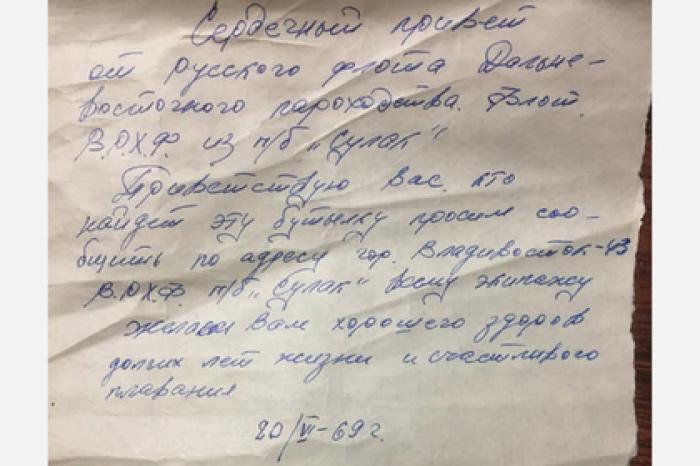 Сердечный привет
от русского флота Дальне-
восточного пароходства. Флот.
В.Р.Х.Ф. из п/б „Сулак“
Приветствую Вас. кто
найдет эту бутылку просим соо-
бщить по адресу гор. Владивосток-43
В.Р.Х.Ф. п/б „Сулак“ всему экипажу
желаем Вам хорошего здоров
долгих лет жизни и счастливого
плавания
20/VI-69 г.